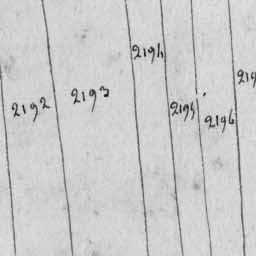 2192
2193
2194
2195
2196